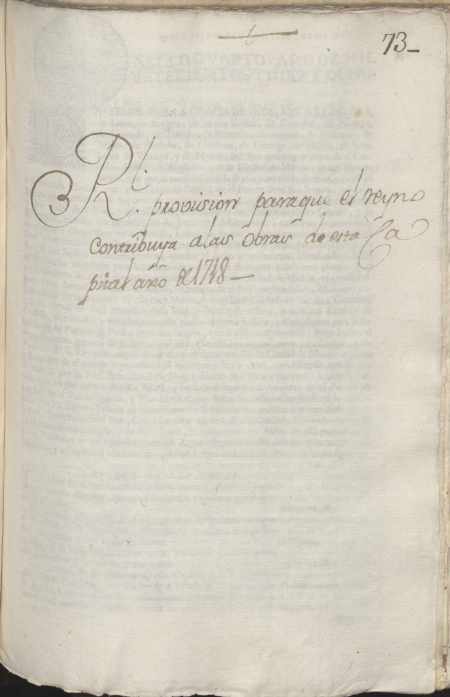 73
Rl. provision paraque el reyno
Contribuya alas obras de esta Ca
pital año de 1718